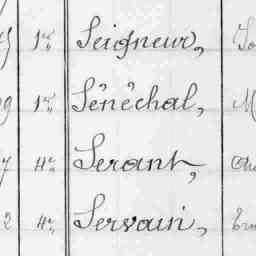 1re Seigneur,
9 1re Sénéchal, M
7 4e Serant,
2 4e Servain,